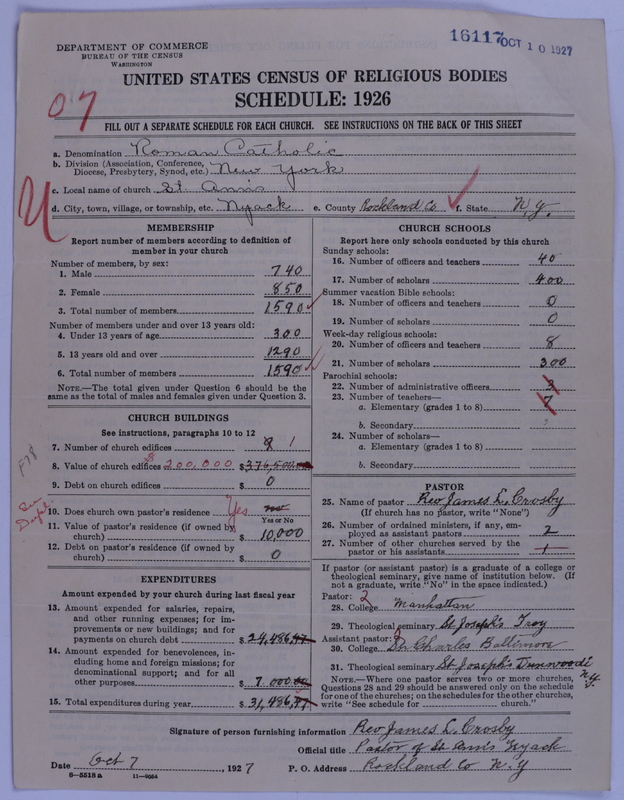 16117 OCT 10 1927
DEPARTMENT OF COMMERCE
BUREAU OF THE CENSUS
WASHINGTON
UNITED STATES CENSUS OF RELIGIOUS BODIES
SCHEDULE: 1926
07
FILL OUT A SEPARATE SCHEDULE FOR EACH CHURCH. SEE INSTRUCTIONS ON THE BACK OF THIS SHEET
a. Denomination Roman Catholic
b. Division (Association, Conference, Diocese, Presbytery, Synod, etc.) New York
c. Local name of church St. Ann's
d. City, town, village, or township, etc. Nyack e. County Rockland Co f. State N.Y.
MEMBERSHIP
Report number of members according to definition of
member in your church
Number of members, by sex:
1. Male 740
2. Female 850
3. Total number of members 1590
Number of members under and over 13 years old:
4. Under 13 years of age 300
5. 13 years old and over 1290
6. Total number of members 1590
NOTE.—The total given under Question 6 should be the
same as the total of males and females given under Question 3.
CHURCH BUILDINGS
See instructions, paragraphs 10 to 12
7. Number of church edifices 1
8. Value of church edifices $200,000 $376,500.00
9. Debt on church edifices $ 0
10. Does church own pastor's residence Yes no
Yes or No
11. Value of pastor's residence (if owned by
church) $ 10,000
12. Debt on pastor's residence (if owned by
church) $ 0
EXPENDITURES
Amount expended by your church during last fiscal year
13. Amount expended for salaries, repairs,
and other running expenses; for im-
provements or new buildings; and for
payments on church debt $ 24,486.47
14. Amount expended for benevolences, in-
cluding home and foreign missions; for
denominational support; and for all
other purposes $ 7 000 00
15. Total expenditures during year $ 31,486.47
CHURCH SCHOOLS
Report here only schools conducted by this church
Sunday schools:
16. Number of officers and teachers 40
17. Number of scholars 400
Summer vacation Bible schools:
18. Number of officers and teachers 0
19. Number of scholars 0
Week-day religious schools:
20. Number of officers and teachers 8
21. Number of scholars 300
Parochial schools:
22. Number of administrative officers 3
23. Number of teachers—
a. Elementary (grades 1 to 8) 7
b. Secondary
24. Number of scholars—
a. Elementary (grades 1 to 8)
b. Secondary
PASTOR
25. Name of pastor Rev James L. Crosby
(If church has no pastor, write "None")
26. Number of ordained ministers, if any, em-
ployed as assistant pastors 2
27. Number of other churches served by the
pastor or his assistants 1
If pastor (or assistant pastor) is a graduate of a college or
theological seminary, give name of institution below. (If
not a graduate, write "No" in the space indicated.)
Pastor: 2
28. College Manhattan
29. Theological seminary St Joseph's Troy
Assistant pastor: 2
30. College St. Charles Baltimore
31. Theological seminary St Joseph's Dunwoodie N.Y.
NOTE.—Where one pastor serves two or more churches,
Questions 28 and 29 should be answered only on the schedule
for one of the churches; on the schedules for the other churches,
write "See schedule for church."
Signature of person furnishing information Rev James L. Crosby
Official title Pastor of St. Ann's Nyack
Date Oct 7, 1927 P. O. Address Rockland Co N.Y
8—5518 a 11—9054